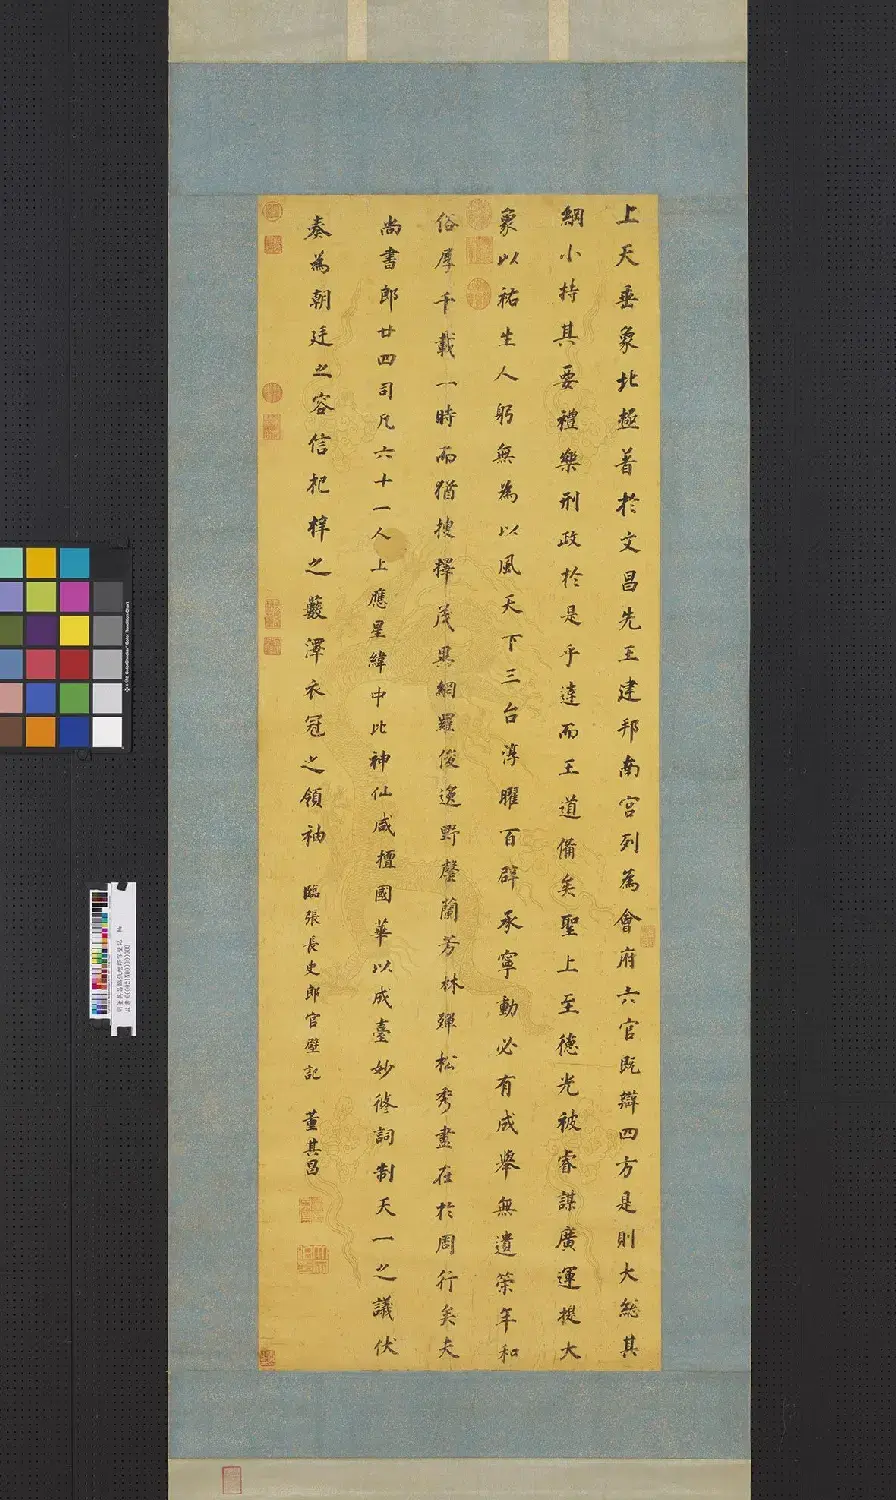 上天垂象北極著於文昌先王建邦南宮列為會府六官既辯四方是則大總其
綱小持其要禮樂刑政於是乎達而王道備矣聖上至德光被睿謀廣運提大
象以祐生人躬無為以風天下三台淳曜百辟承寧動必有成舉無遺策年和
俗厚千載一時而猶搜擇茂異網羅俊逸野罄蘭芳林殫松秀盡在於周行矣夫
尚書郎廿四司凡六十一人上應星緯中比神仙咸擅國華以成臺妙修詞制天一之議伏
奏為朝廷之容信杞梓之藪澤衣冠之領袖
臨張長史郎官壁記 董其昌